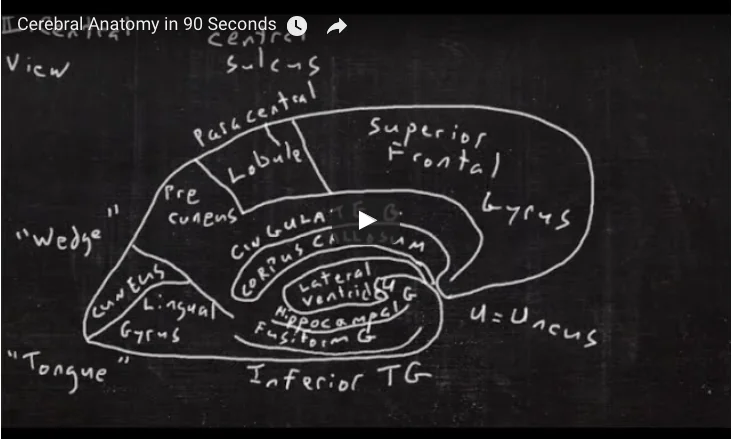 Cerebral Anatomy in 90 Seconds
View
central
sulcus
Paracentral
Lobule
Superior
Frontal
Gyrus
Pre
cuneus
"Wedge"
CINGULATE G
CORPUS CALLOSUM
Lateral
Ventricle
U
G
Hippocampal
Fusiform G
CUNEUS
Lingual
Gyrus
U = Uncus
"Tongue"
Inferior TG